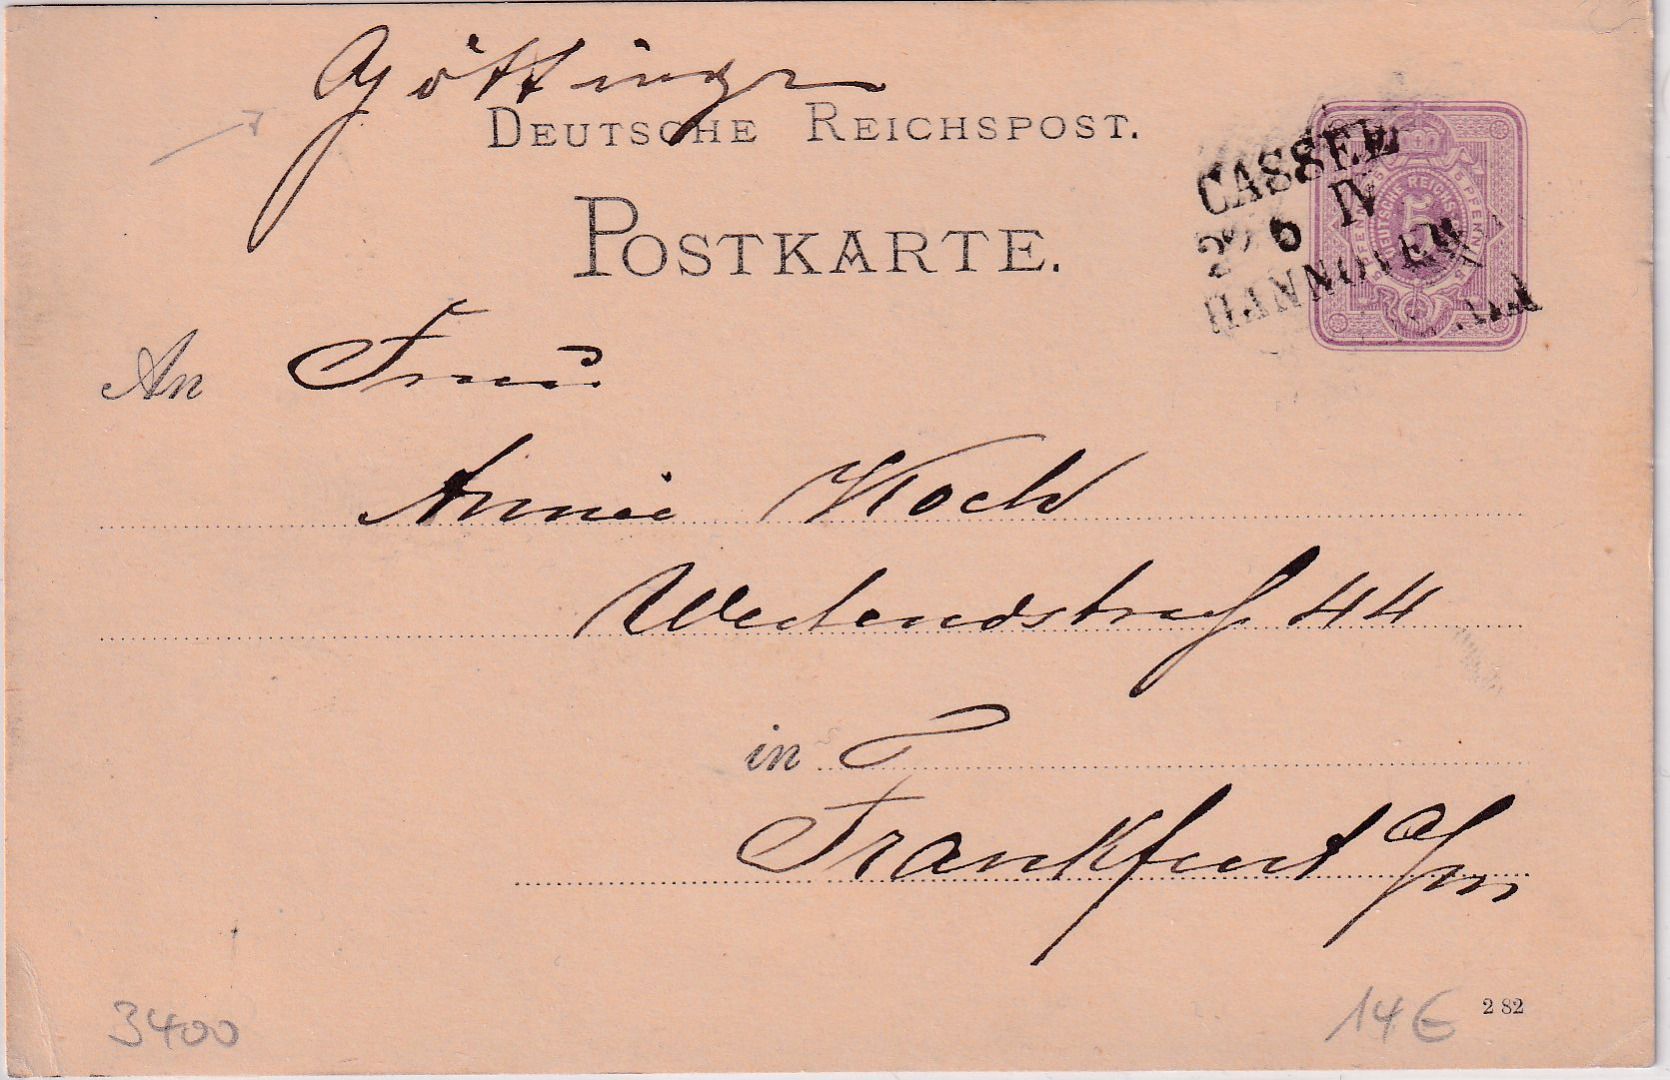 Göttingen
DEUTSCHE REICHSPOST.
POSTKARTE.
CASSEL
IV
HANNOVER
5 PFENNIG
DEUTSCHE REICHSPOST
An Frau
Annie Koch
44
in
Frankfurt a/m
3400
14 €
2 82